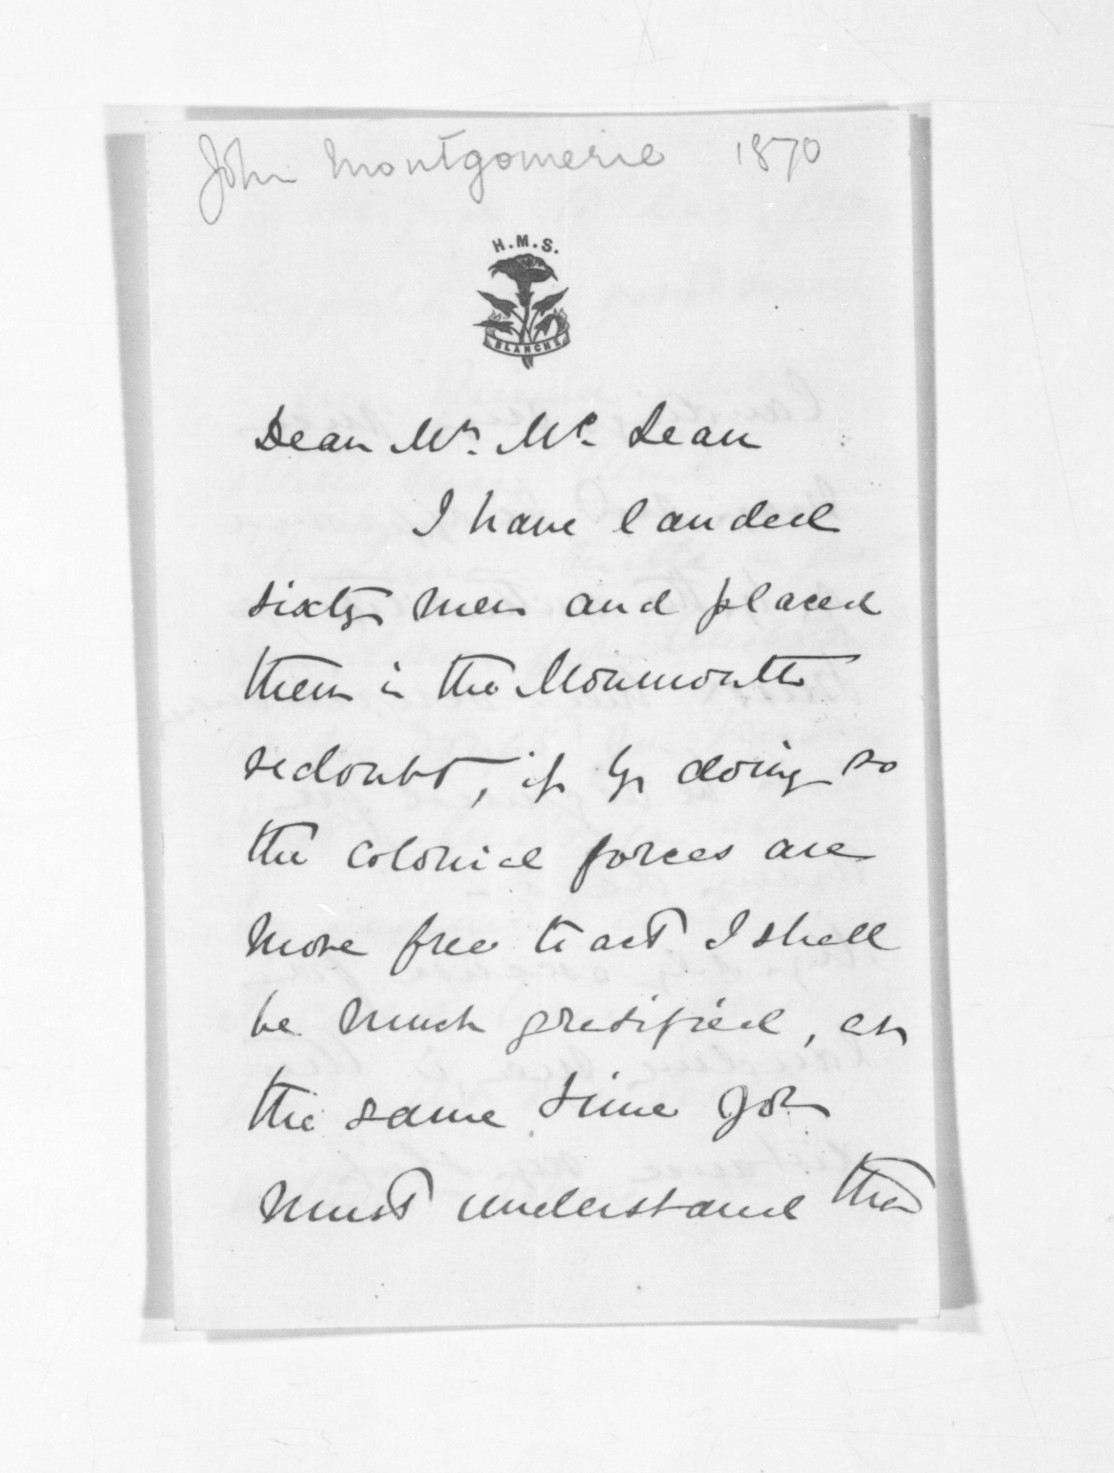 John Montgomerie 1870
H.M.S.
BLANCHE
Dear Mr. Mc. Lean
I have landed
sixty men and placed
them in the Monmouth
redoubt, if by doing so
the colonial forces are
more free to act I shall
be much gratified, at
the same time you
must understand that